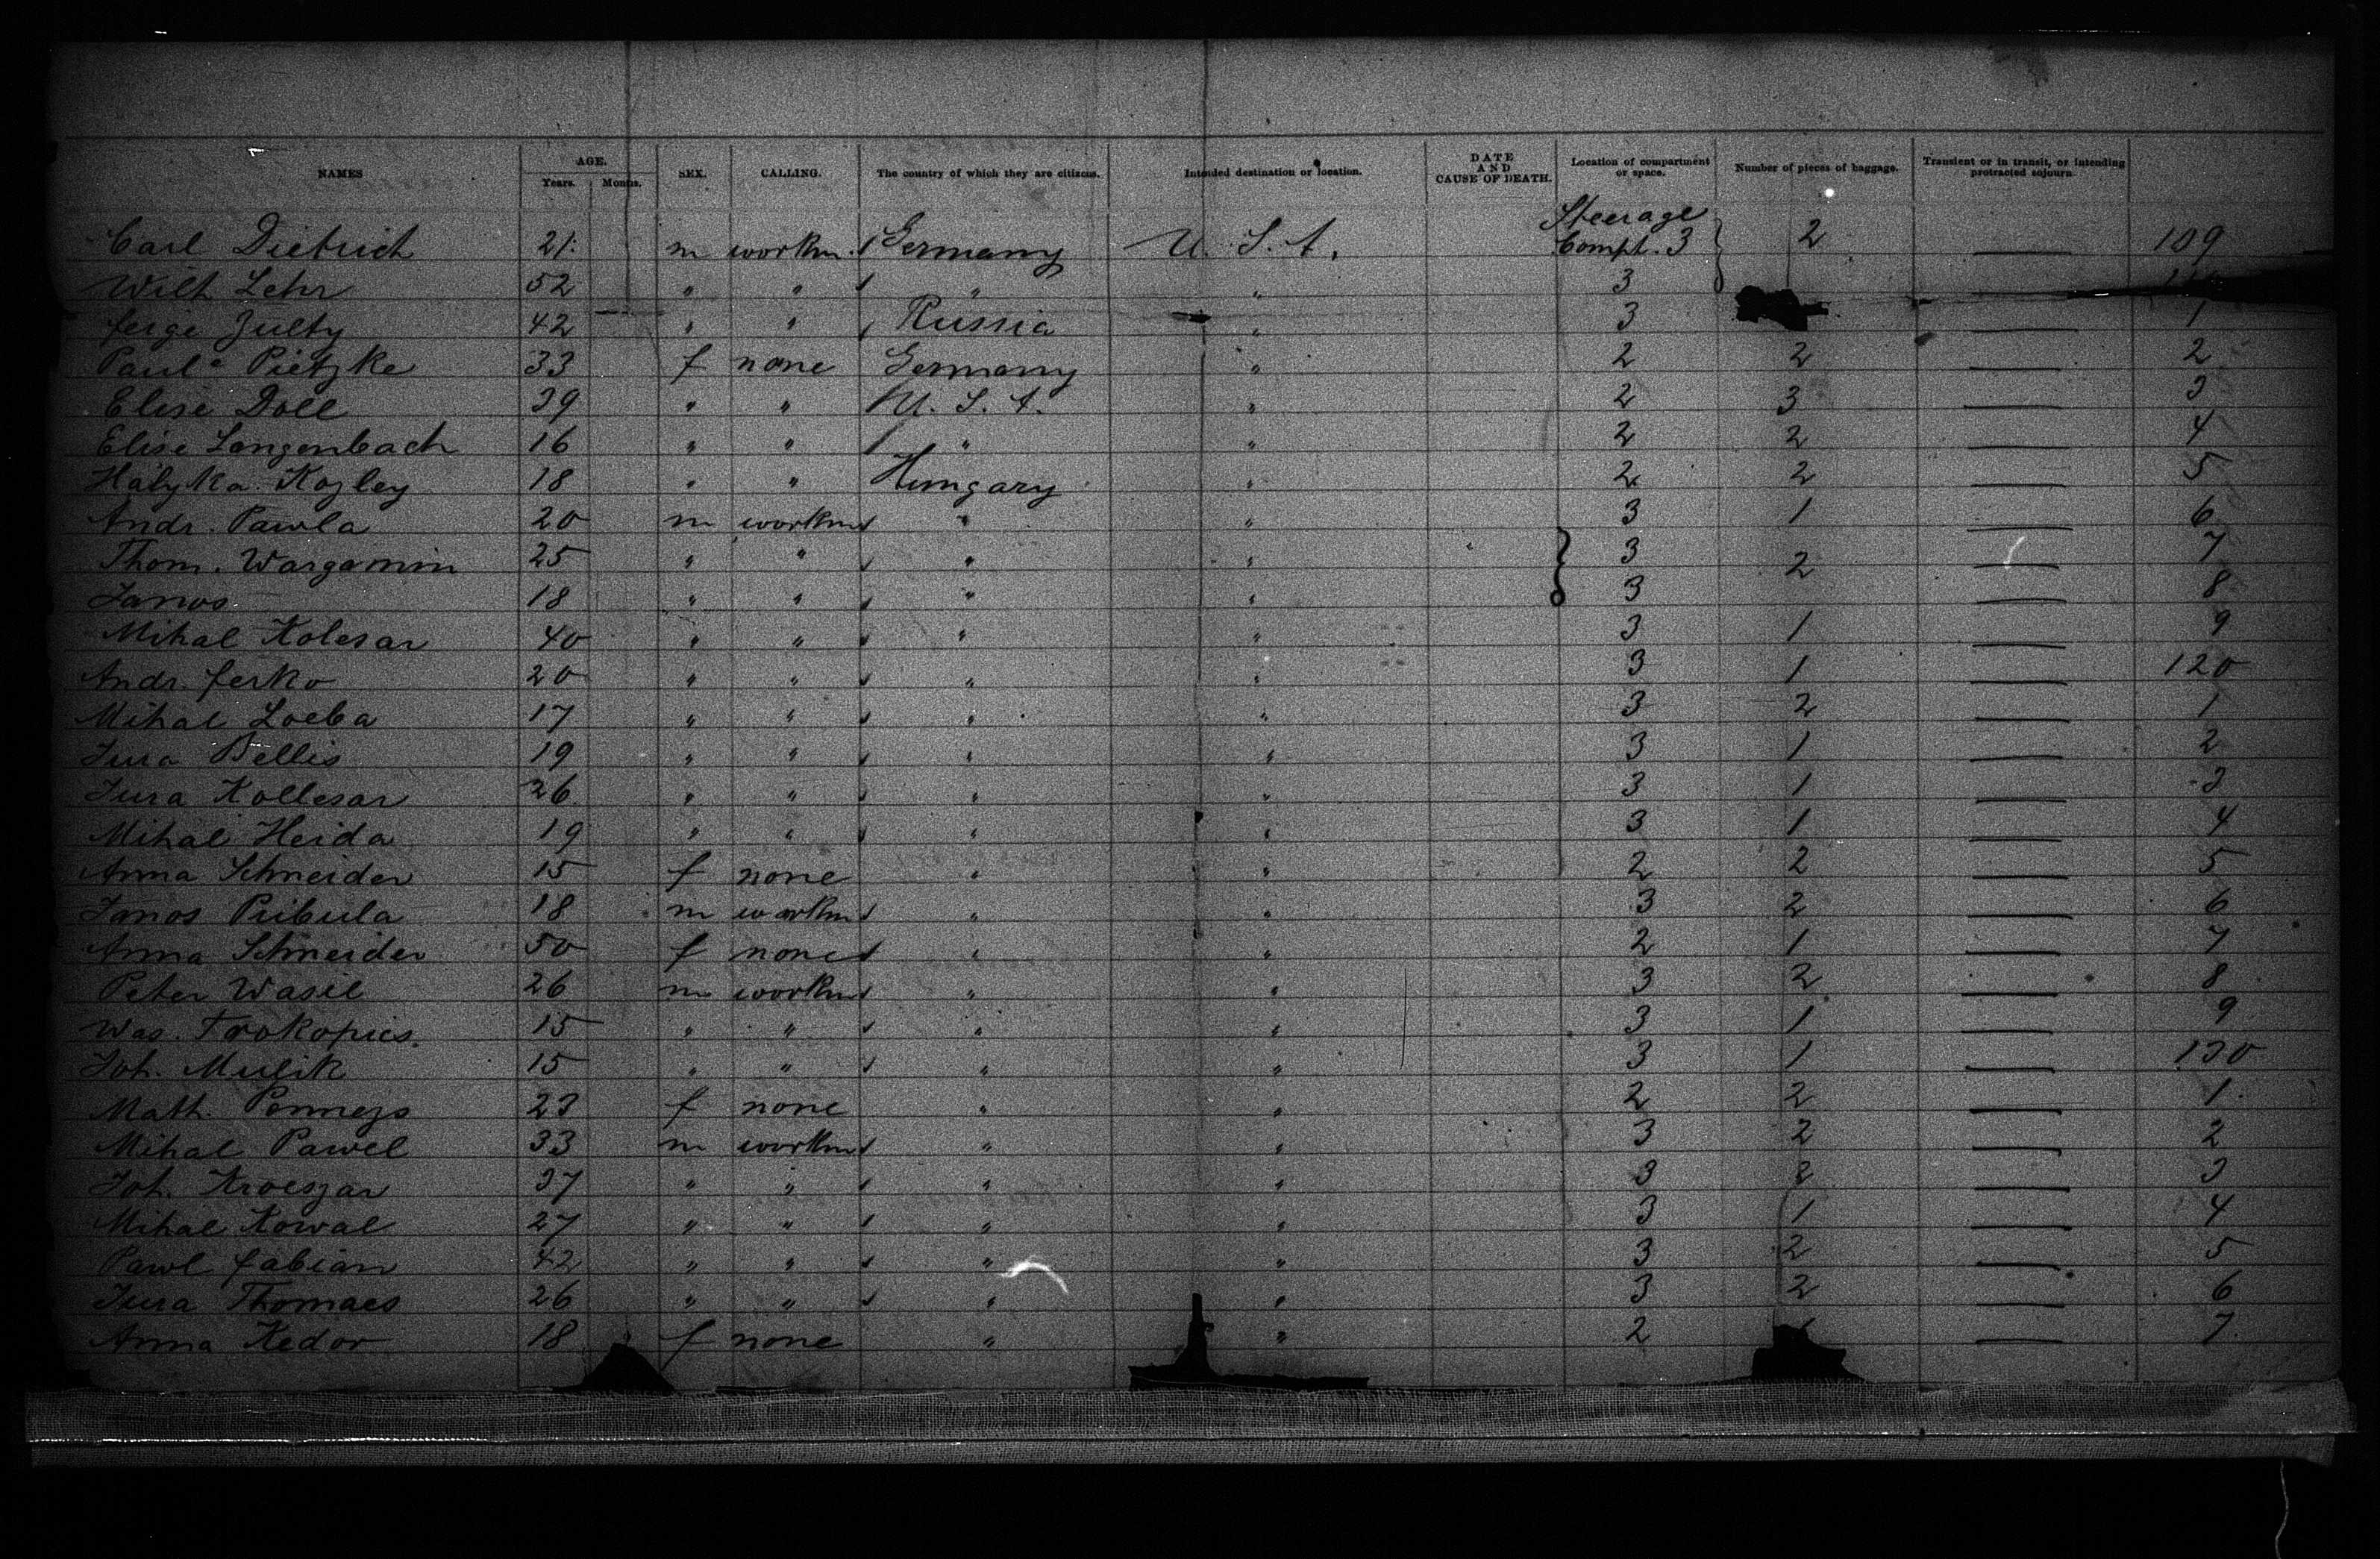 NAMES AGE. Years. Months. SEX. CALLING. The country of which they are citizens. Intended destination or location. DATE AND CAUSE OF DEATH. Location of compartment or space. Number of pieces of baggage. Transient or in transit, or intending protracted sojourn
Carl Dietrich 21 m workm. Germany U. S. A. Steerage Compt. 3 2 — 109
Wilh Lehr 52 " " " " 3 —
Zulty 42 " " Russia " 3 — 1
Paul Pietzke 33 f none Germany " 2 2 — 2
Elise Doll 39 " " U. S. A. " 2 3 — 3
Elise Langenbach 16 " " " " 2 2 — 4
Kozley 18 " " Hungary " 2 2 — 5
Andr. Pawla 20 m workm " " 3 1 — 6
Thom. Wargamin 25 " " " " 3 2 — 7
Janos 18 " " " " 3 — 8
Mihal Kolesar 40 " " " " 3 1 — 9
Andr. Ferko 20 " " " " 3 1 — 120
Mihal Loeba 17 " " " " 3 2 — 1
Jura Bellis 19 " " " " 3 1 — 2
Jura Kollesar 26 " " " " 3 1 — 3
Mihal Heida 19 " " " " 3 1 — 4
Anna Schneider 15 f none " " 2 2 — 5
Janos Pribula 18 m workm " " 3 2 — 6
Anna Schneider 50 f none " " 2 1 — 7
Peter Wasil 26 m workm " " 3 2 — 8
Was. Prokopics. 15 " " " " 3 1 — 9
Joh. Mulik 15 " " " " 3 1 — 130
Math. 23 f none " " 2 2 — 1
Mihal Pawel 33 m workm " " 3 2 — 2
Joh. 37 " " " " 3 2 — 3
Mihal Kowal 27 " " " " 3 1 — 4
Pawl Fabian 42 " " " " 3 2 — 5
Jura Thomaes 26 " " " " 3 2 — 6
Anna Kedor 18 f none " " 2 — 7